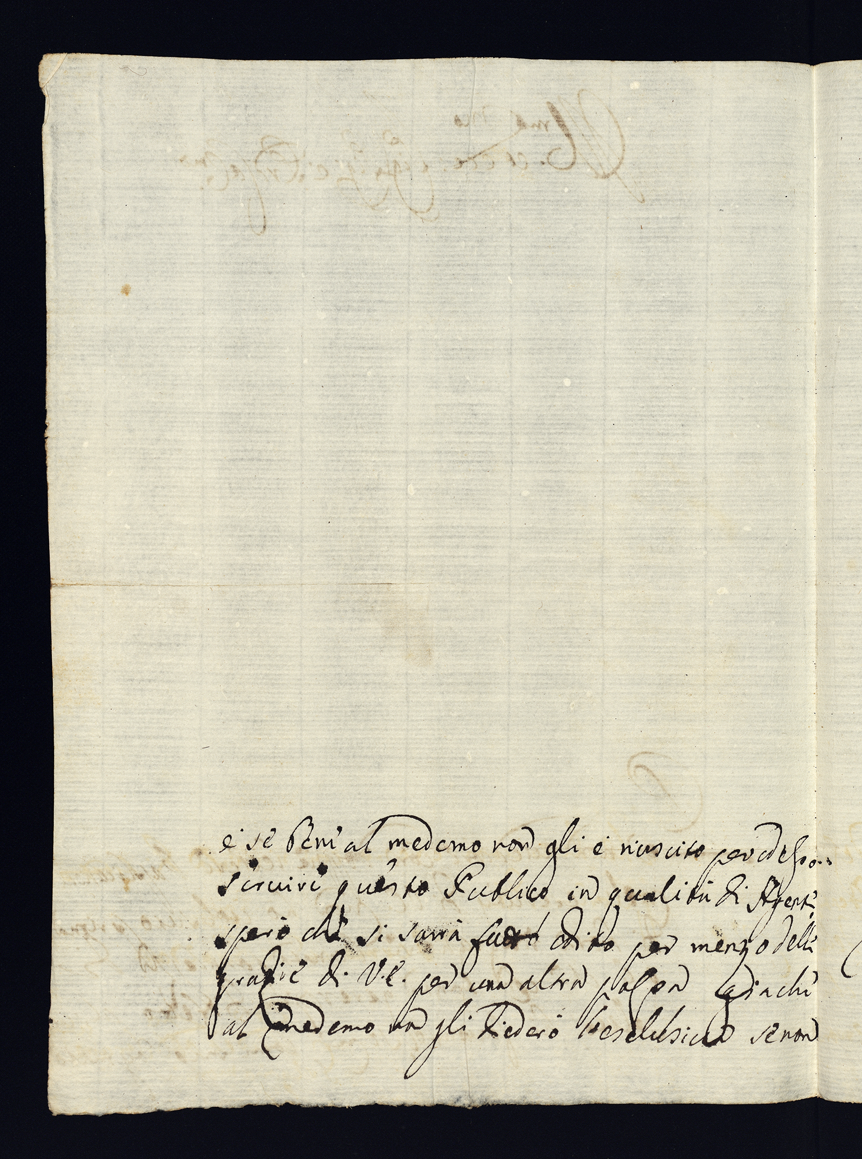 e se ben al medemo non gli è riuscito per adesso
servire questo Publico in qualità di Agente
sperò che si sarrà adito per menzo delle
grazie di V.E. per una altra già chi
al medemo non gli diederò l'esclusiva se non